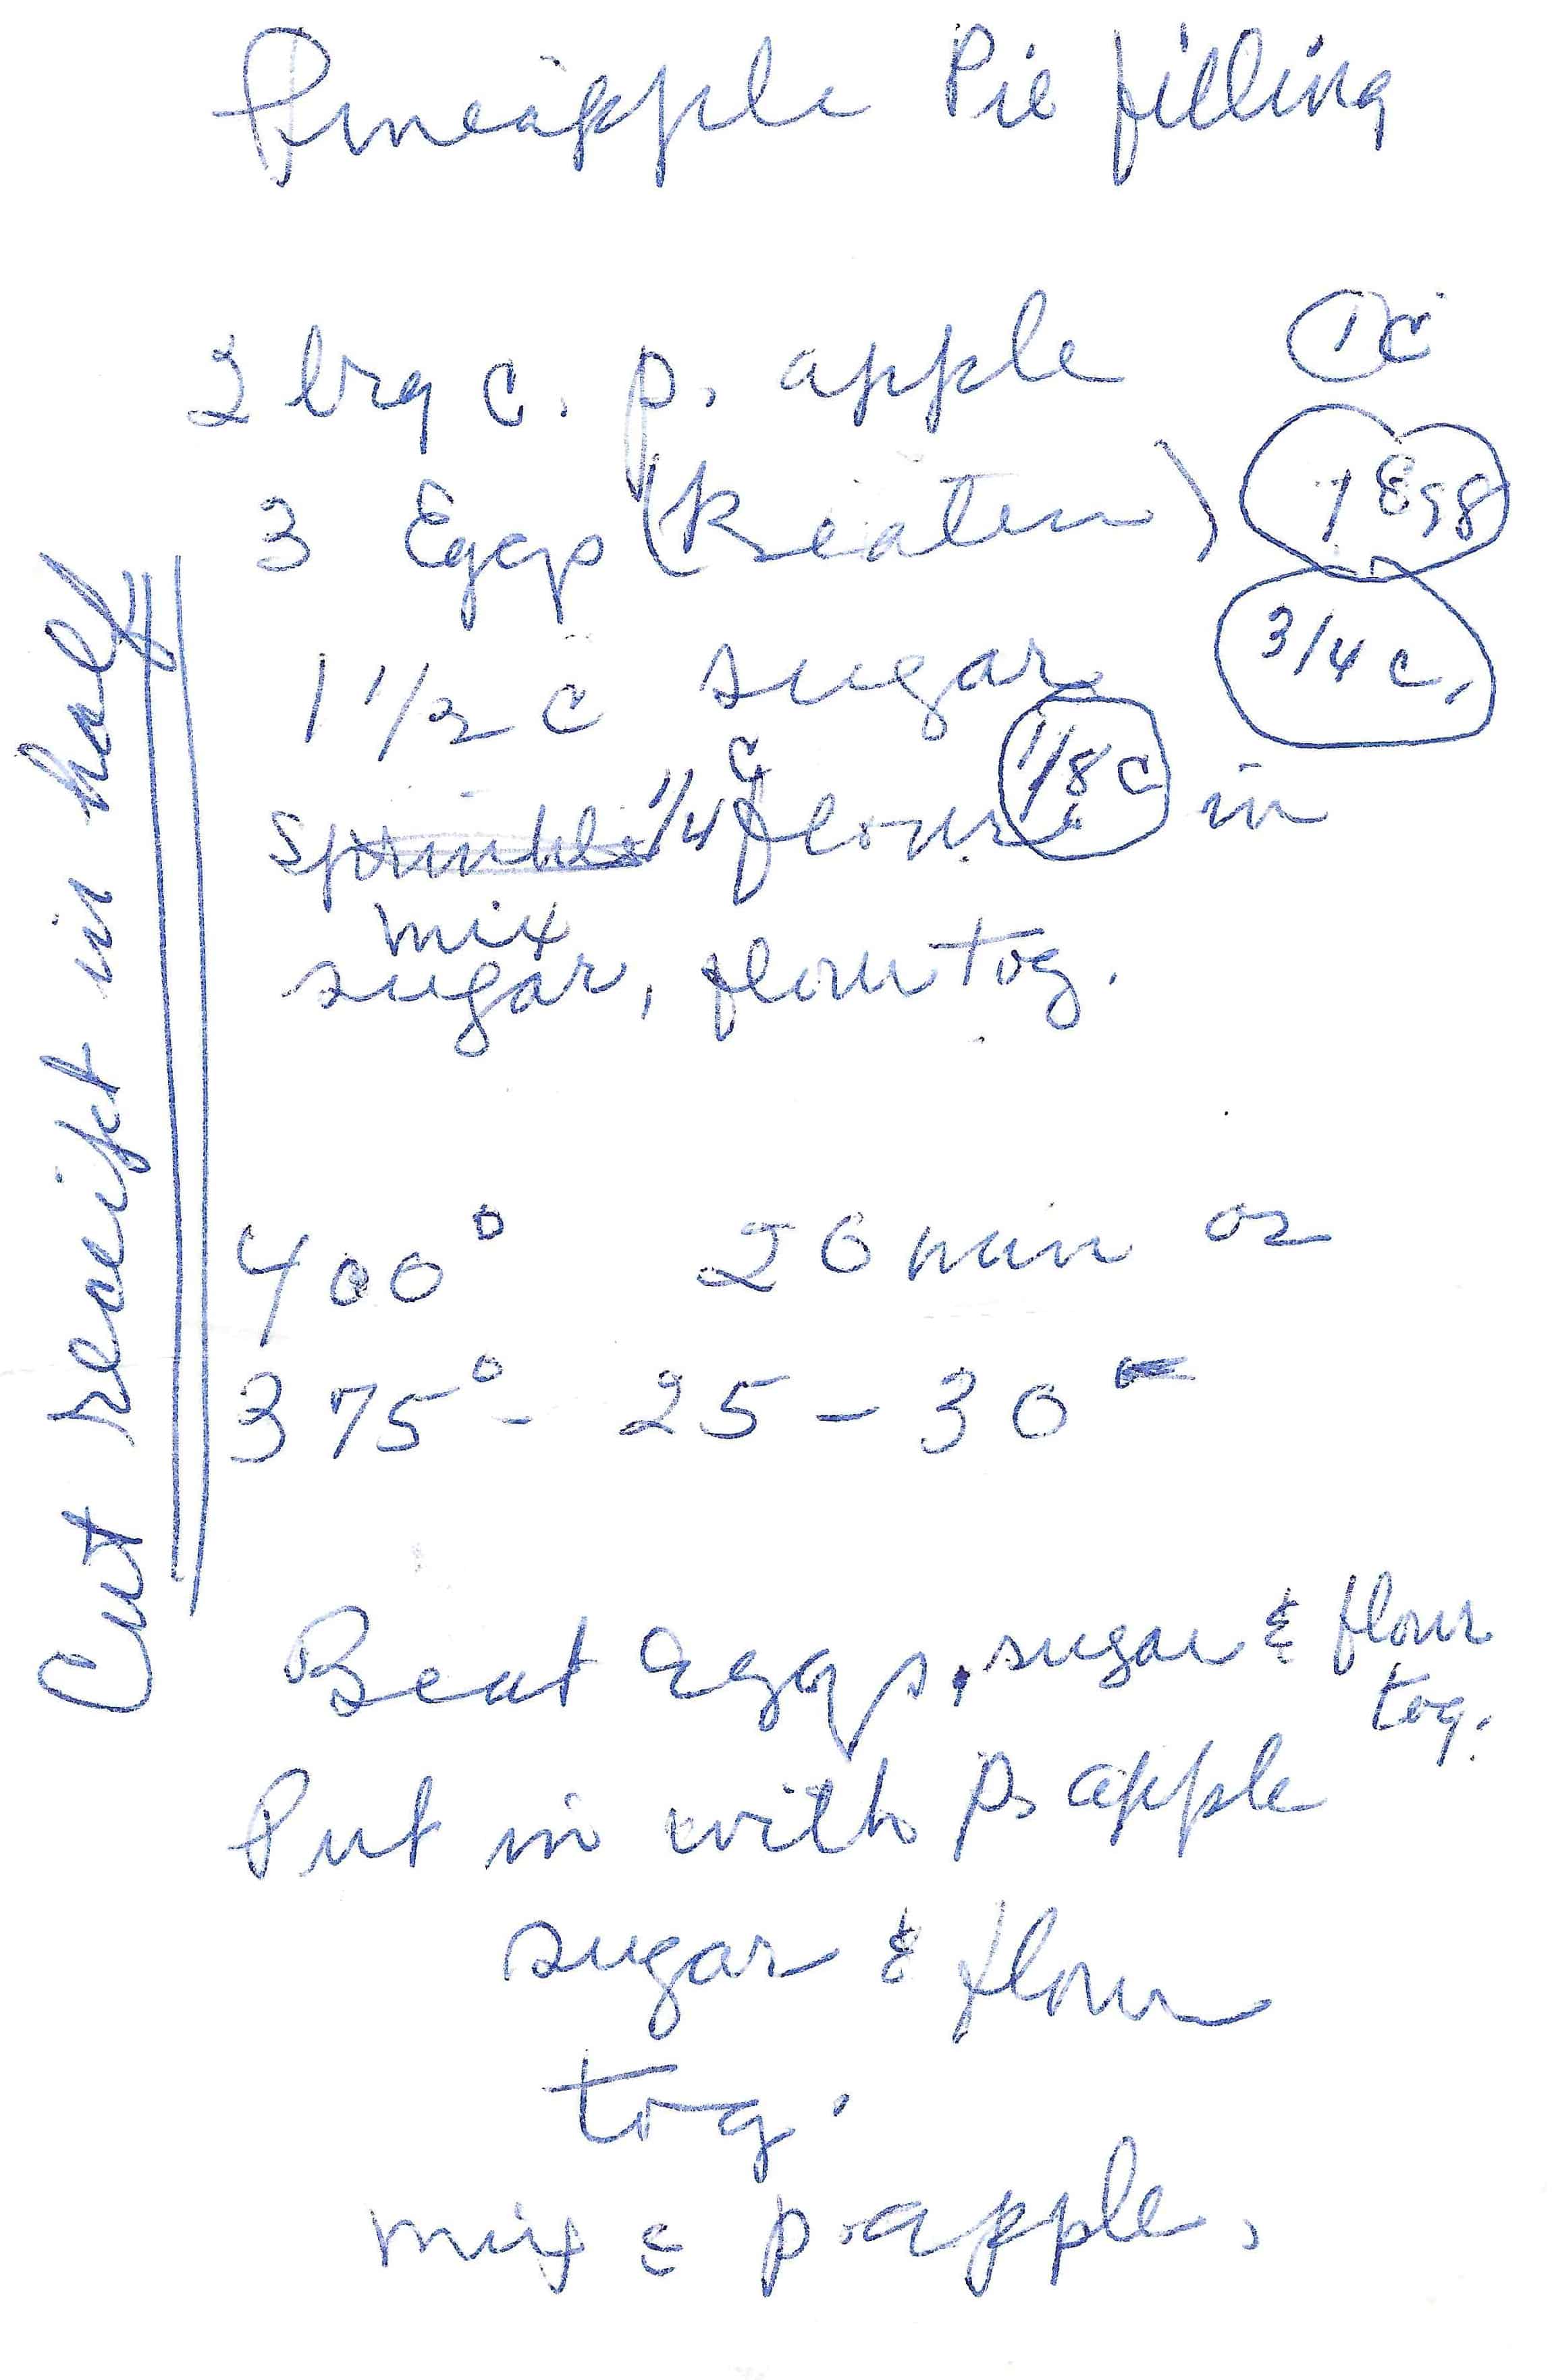 Pineapple Pie filling
2 lrg c. p. apple 1 c
3 Eggs (Beaten) 1 Egg
1 1/2 c sugar 3/4 c.
Sprinkle 1/4 c flour 1/8 c in
mix
sugar, flour tog.
400° 20 min or
375° - 25 - 30
Beat Eggs, sugar & flour
tog.
Put in with P. apple
sugar & flour
tog.
mix c p. apple.
Cut receipt in half